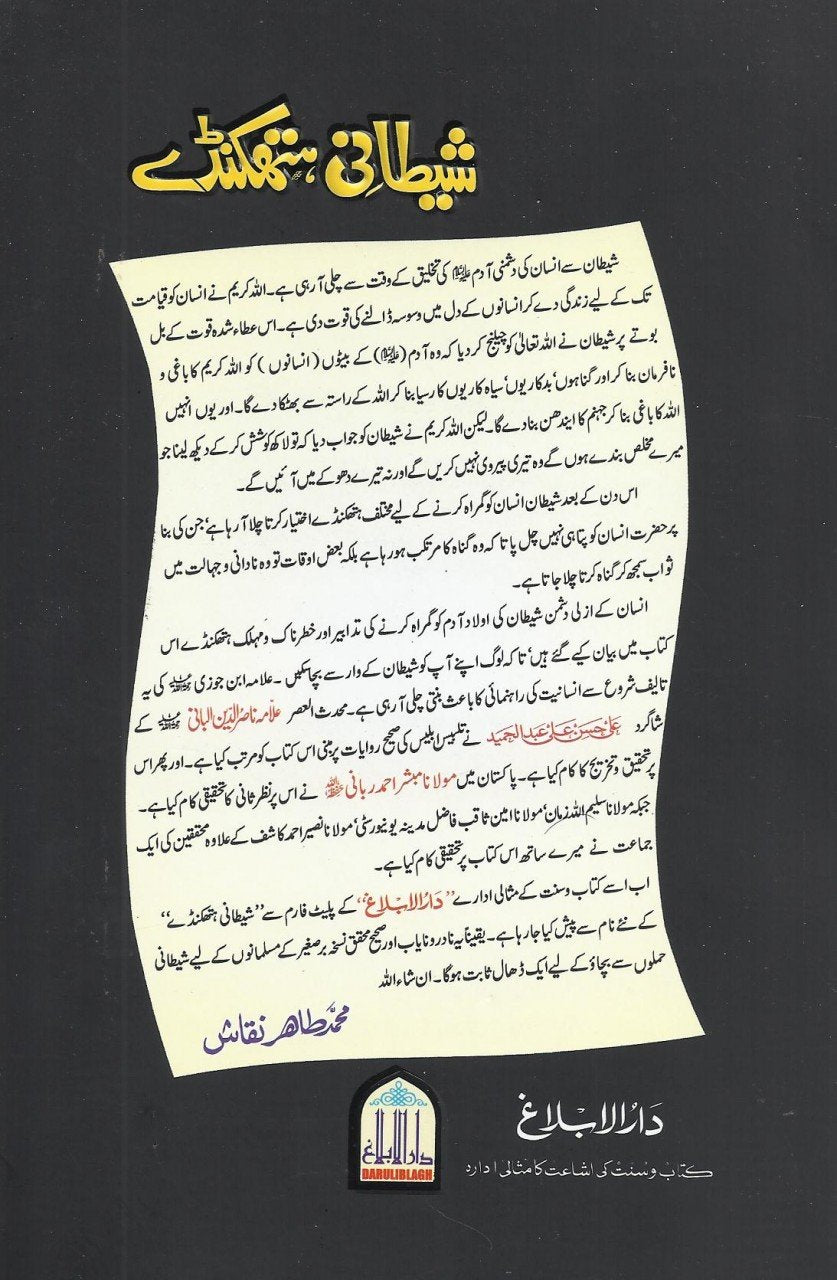 شیطانی ہتھکنڈے
شیطان سے انسان کی دشمنی آدم علیہ السلام کی تخلیق کے وقت سے چلی آ رہی ہے۔ اللہ کریم نے انسان کو قیامت
تک کے لیے زندگی دے کر انسانوں کے دل میں وسوسہ ڈالنے کی قوت دی ہے۔ اس عطاء شدہ قوت کے بل
بوتے پر شیطان نے اللہ تعالیٰ کو چیلنج کر دیا کہ وہ آدم (علیہ السلام) کے بیٹوں (انسانوں) کو اللہ کریم کا باغی و
نافرمان بنا کر اور گناہوں‘ بدکاریوں‘ سیاہ کاریوں کا رسیا بنا کر اللہ کے راستہ سے بھٹکا دے گا۔ اور یوں انہیں
اللہ کا باغی بنا کر جہنم کا ایندھن بنا دے گا۔ لیکن اللہ کریم نے شیطان کو جواب دیا کہ تو لاکھ کوشش کر کے دیکھ لینا جو
میرے مخلص بندے ہوں گے وہ تیری پیروی نہیں کریں گے اور نہ تیرے دھوکے میں آئیں گے۔
اس دن کے بعد شیطان انسان کو گمراہ کرنے کے لیے مختلف ہتھکنڈے اختیار کرتا چلا آ رہا ہے‘ جن کی بنا
پر حضرت انسان کو پتا ہی نہیں چل پاتا کہ وہ گناہ کا مرتکب ہو رہا ہے بلکہ بعض اوقات تو وہ نادانی و جہالت میں
ثواب سمجھ کر گناہ کرتا چلا جاتا ہے۔
انسان کے ازلی دشمن شیطان کی اولاد آدم کو گمراہ کرنے کی تدابیر اور خطرناک و مہلک ہتھکنڈے اس
کتاب میں بیان کیے گئے ہیں‘ تاکہ لوگ اپنے آپ کو شیطان کے وار سے بچا سکیں۔ علامہ ابن جوزی رحمہ اللہ کی یہ
تالیف شروع سے انسانیت کی راہنمائی کا باعث بنتی چلی آ رہی ہے۔ محدث العصر علامہ ناصر الدین البانی رحمہ اللہ کے
شاگرد علی حسن علی عبدالحمید نے تلبیس ابلیس کی صحیح روایات پر مبنی اس کتاب کو مرتب کیا ہے۔ اور پھر اس
پر تحقیق و تخریج کا کام کیا ہے۔ پاکستان میں مولانا مبشر احمد ربانی حفظہ اللہ نے اس پر نظر ثانی کا تحقیقی کام کیا ہے۔
جبکہ مولانا سلیم اللہ زمان‘ مولانا امین ثاقب فاضل مدینہ یونیورسٹی‘ مولانا نصیر احمد کاشف کے علاوہ محققین کی ایک
جماعت نے میرے ساتھ اس کتاب پر تحقیقی کام کیا ہے۔
اب اسے کتاب و سنت کے مثالی ادارے ”دار الابلاغ“ کے پلیٹ فارم سے ”شیطانی ہتھکنڈے“
کے نئے نام سے پیش کیا جا رہا ہے۔ یقیناً یہ نادر و نایاب اور صحیح محقق نسخہ برصغیر کے مسلمانوں کے لیے شیطانی
حملوں سے بچاؤ کے لیے ایک ڈھال ثابت ہوگا۔ ان شاء اللہ
محمد طاہر نقاش
دار الابلاغ
DARULIBLAGH
دَارُ الابلاغ
کتاب و سنت کی اشاعت کا مثالی ادارہ